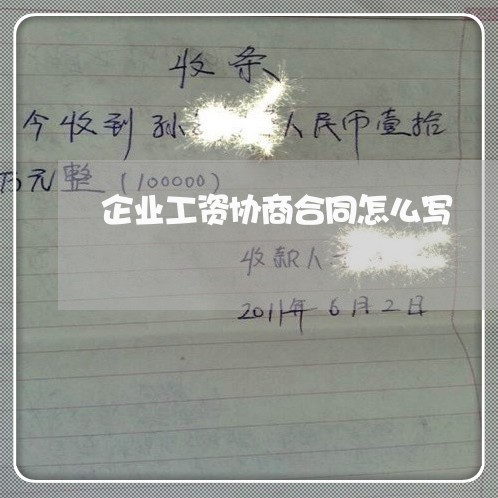 收条
今收到孙 人民币壹拾
万元整（100000）
企业工资协商合同怎么写
收款人
2011年6月2日